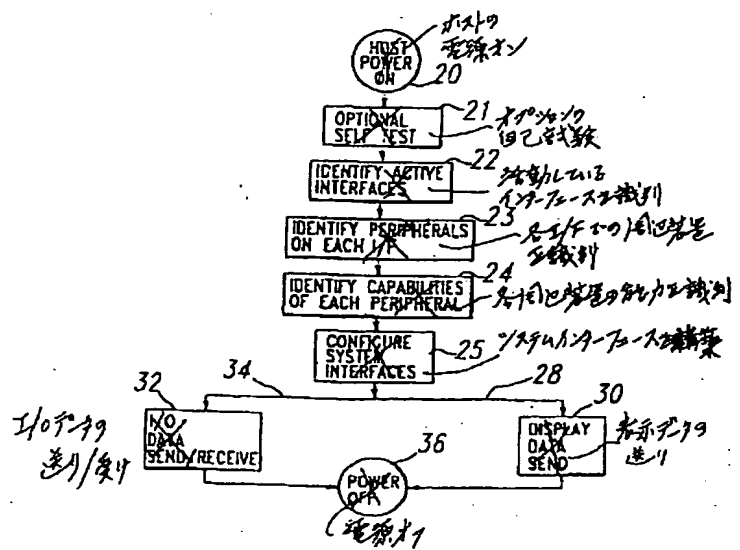 ホストの
電源オン
HOST
POWER
ON
20
21
OPTIONAL
SELF TEST
オプションの
自己試験
22
IDENTIFY ACTIVE
INTERFACES
活動している
インターフェースを識別
23
IDENTIFY PERIPHERALS
ON EACH I/F
各I/Fでの周辺装置
を識別
24
IDENTIFY CAPABILITIES
OF EACH PERIPHERAL
各周辺装置の能力を識別
CONFIGURE
SYSTEM
INTERFACES
25
システムインターフェースを構築
34
28
32
30
I/Oデータの
送り/受け
I/O
DATA
SEND/RECEIVE
36
DISPLAY
DATA
SEND
表示データの
送り
POWER
OFF
電源オフ